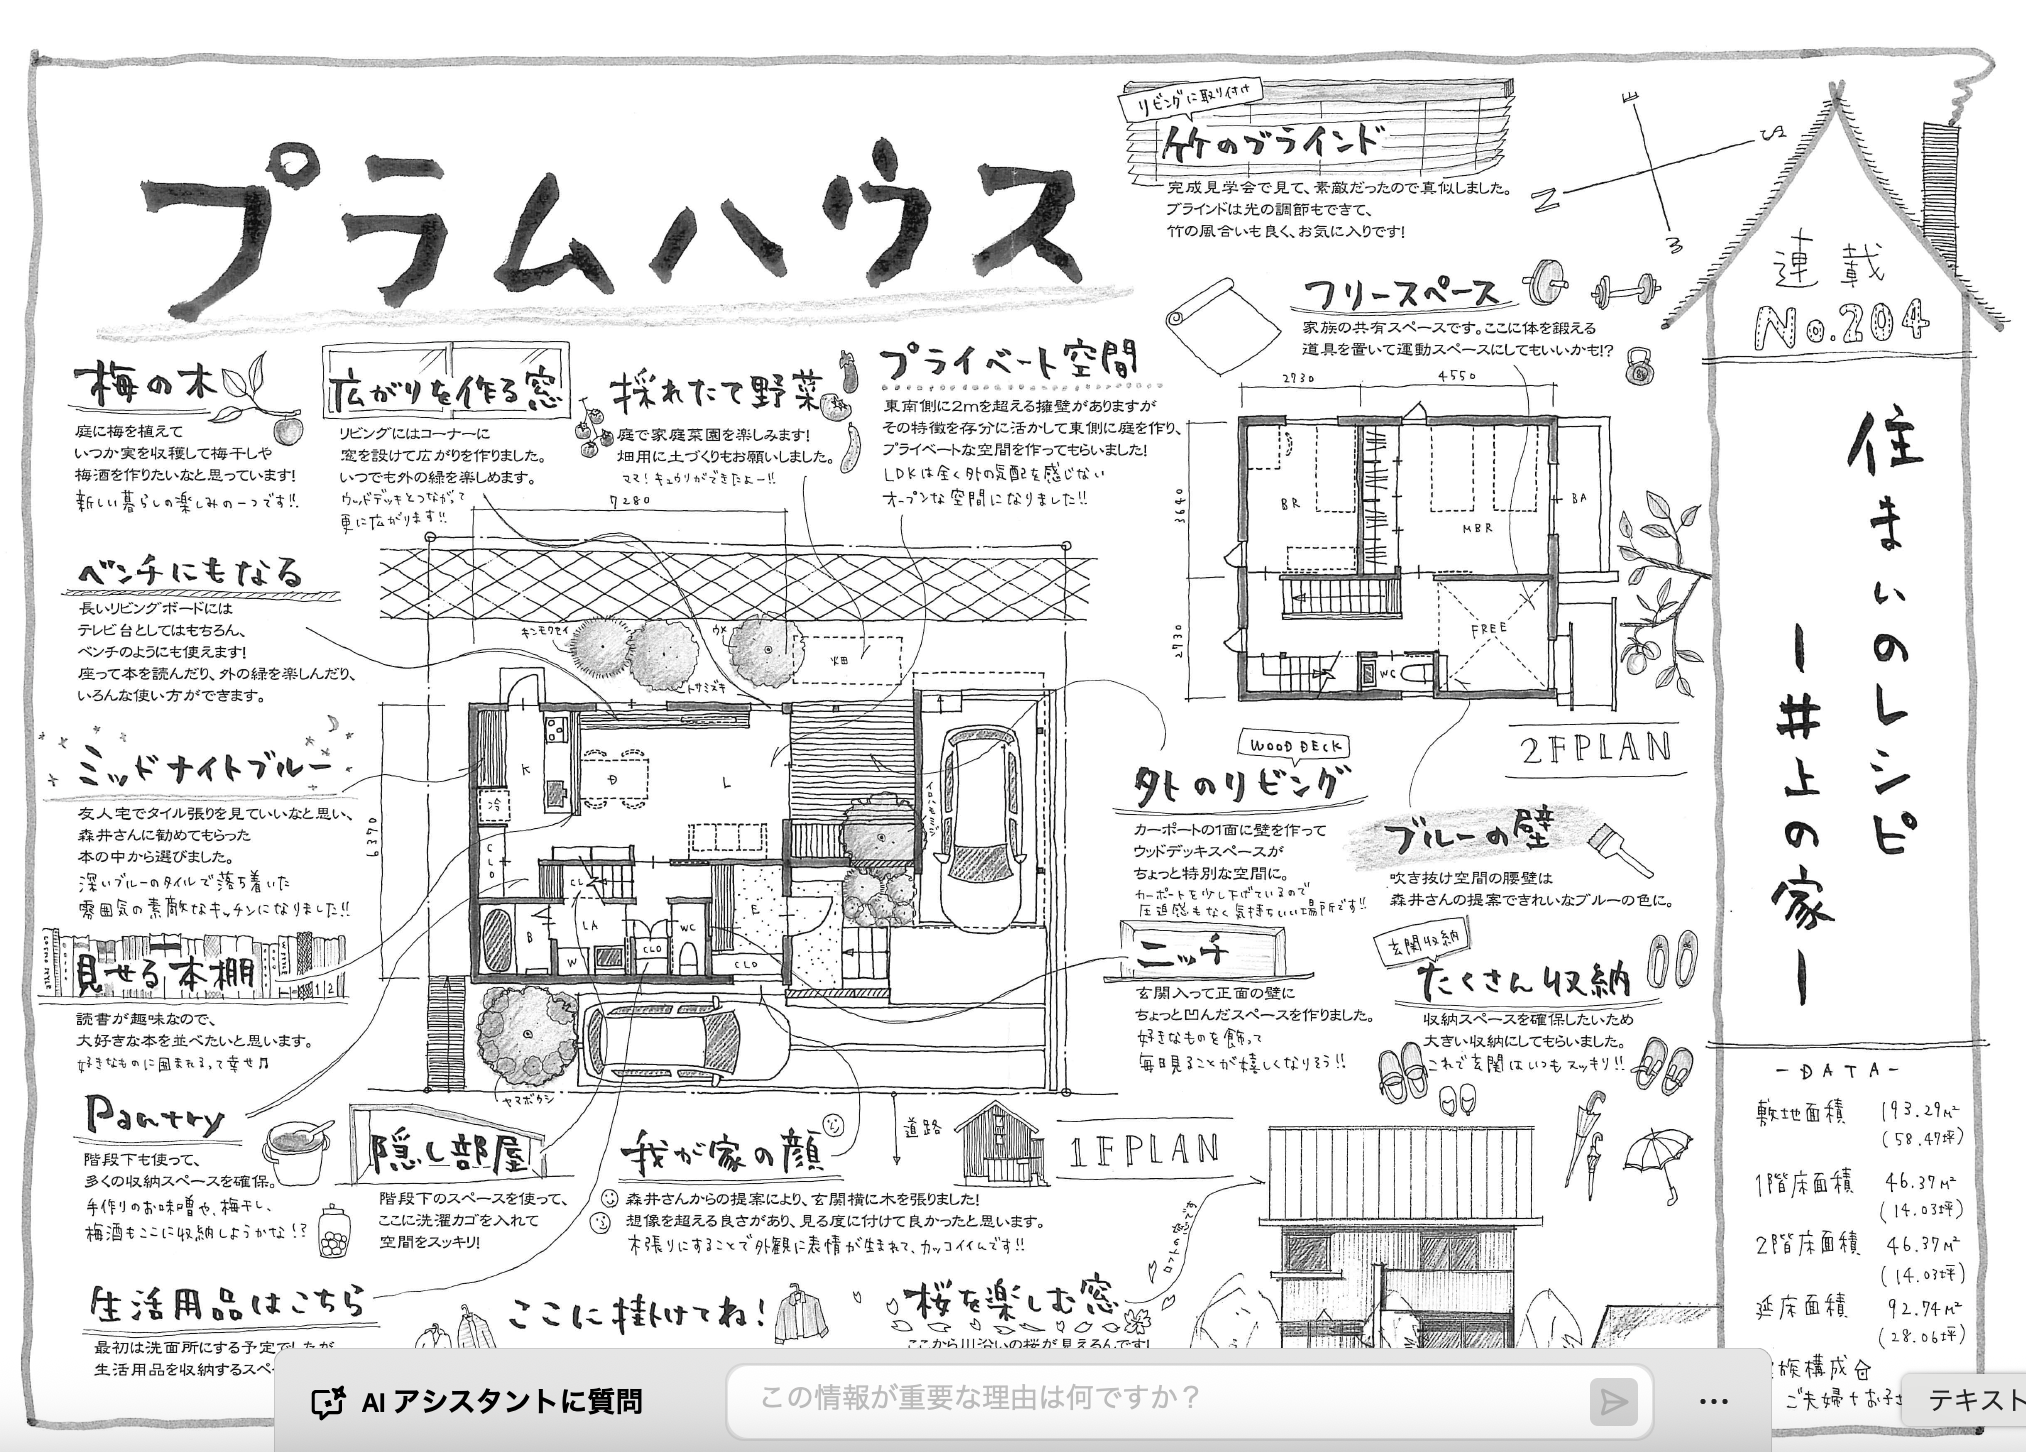 プラムハウス
リビングに取り付け
竹のブラインド
完成見学会で見て、素敵だったので真似しました。
ブラインドは光の調節もできて、
竹の風合いも良く、お気に入りです!
E
S
N
W
フリースペース
家族の共有スペースです。ここに体を鍛える
道具を置いて運動スペースにしてもいいかも!?
連載
No.204
住まいのレシピ
ー井上の家ー
梅の木
庭に梅を植えて
いつか実を収穫して梅干しや
梅酒を作りたいなと思っています!
新しい暮らしの楽しみの一つです!!
広がりを作る窓
リビングにはコーナーに
窓を設けて広がりを作りました。
いつでも外の緑を楽しめます。
ウッドデッキとつながって
更に広がります!!
採れたて野菜
庭で家庭菜園を楽しみます!
畑用に土づくりもお願いしました。
ママ!キュウリができたよー!!
プライベート空間
東南側に2mを超える擁壁がありますが
その特徴を存分に活かして東側に庭を作り、
プライベートな空間を作ってもらいました!
LDKは全く外の気配を感じない
オープンな空間になりました!!
ベンチにもなる
長いリビングボードには
テレビ台としてはもちろん、
ベンチのようにも使えます!
座って本を読んだり、外の緑を楽しんだり、
いろんな使い方ができます。
ミッドナイトブルー
友人宅でタイル張りを見ていいなと思い、
森井さんに勧めてもらった
本の中から選びました。
深いブルーのタイルで落ち着いた
雰囲気の素敵なキッチンになりました!!
見せる本棚
読書が趣味なので、
大好きな本を並べたいと思います。
好きなものに囲まれるって幸せ♫
Pantry
階段下も使って、
多くの収納スペースを確保。
手作りのお味噌や、梅干し、
梅酒もここに収納しようかな!?
7280
6370
キンモクセイ
トサミズキ
ウメ
畑
K
冷
D
L
CLO
CL
B
LA
W
CLO
WC
E
CLO
イロハモミジ
ヤマボウシ
道路
1FPLAN
2730
4550
3640
2730
BR
MBR
BA
FREE
WC
2FPLAN
WOOD DECK
外のリビング
カーポートの1面に壁を作って
ウッドデッキスペースが
ちょっと特別な空間に。
カーポートを少し下げているので
圧迫感もなく気持ちいい場所です!!
ブルーの壁
吹き抜け空間の腰壁は
森井さんの提案できれいなブルーの色に。
ニッチ
玄関入って正面の壁に
ちょっと凹んだスペースを作りました。
好きなものを飾って
毎日見ることが嬉しくなりそう!!
玄関収納
たくさん収納
収納スペースを確保したいため
大きい収納にしてもらいました。
これで玄関はいつもスッキリ!!
隠し部屋
階段下のスペースを使って、
ここに洗濯カゴを入れて
空間をスッキリ!
我が家の顔
森井さんからの提案により、玄関横に木を張りました!
想像を超える良さがあり、見る度に付けて良かったと思います。
木張りにすることで外観に表情が生まれて、カッコイイんです!!
生活用品はこちら
最初は洗面所にする予定でしたが、
生活用品を収納するスペ
ここに掛けてね!
桜を楽しむ窓
ここから川沿いの桜が見えるんです!
ロフトの窓です
-DATA-
敷地面積 193.29㎡
(58.47坪)
1階床面積 46.37㎡
(14.03坪)
2階床面積 46.37㎡
(14.03坪)
延床面積 92.74㎡
(28.06坪)
族構成
ご夫婦+お子
AI アシスタントに質問
この情報が重要な理由は何ですか?
テキスト